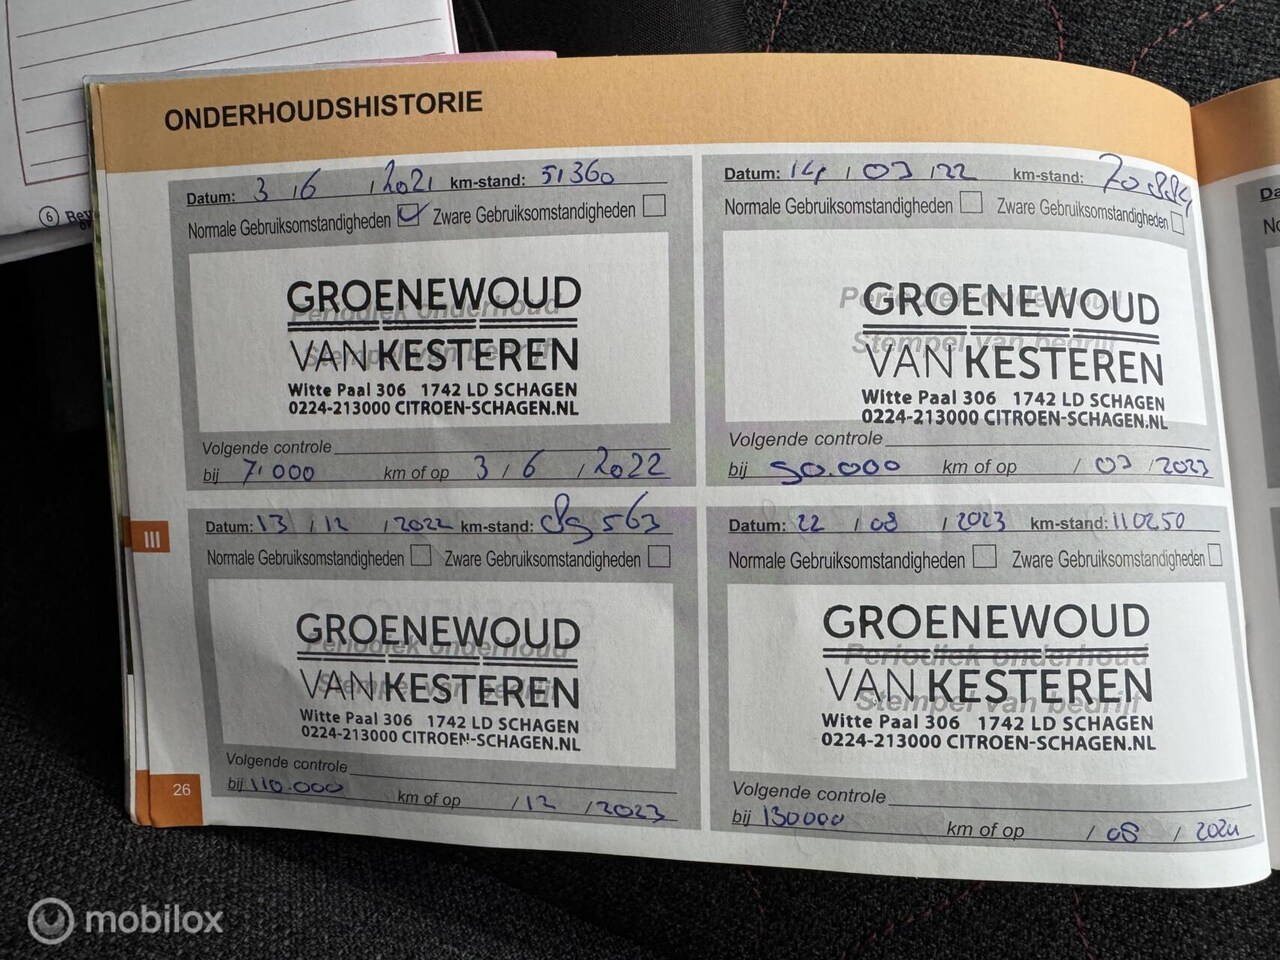 ONDERHOUDSHISTORIE
Datum: 3 / 6 / 2021 km-stand: 51360
Normale Gebruiksomstandigheden Zware Gebruiksomstandigheden
Periodiek onderhoud
Stempel van bedrijf
GROENEWOUD
VAN KESTEREN
Witte Paal 306 1742 LD SCHAGEN
0224-213000 CITROEN-SCHAGEN.NL
Volgende controle
bij 71.000 km of op 3 / 6 / 2022
Datum: 14 / 03 / 22 km-stand: 70884
Normale Gebruiksomstandigheden Zware Gebruiksomstandigheden
Periodiek onderhoud
Stempel van bedrijf
GROENEWOUD
VAN KESTEREN
Witte Paal 306 1742 LD SCHAGEN
0224-213000 CITROEN-SCHAGEN.NL
Volgende controle
bij 90.000 km of op / 03 / 2023
III
Datum: 13 / 12 / 2022 km-stand: 89563
Normale Gebruiksomstandigheden Zware Gebruiksomstandigheden
Periodiek onderhoud
Stempel van bedrijf
GROENEWOUD
VAN KESTEREN
Witte Paal 306 1742 LD SCHAGEN
0224-213000 CITROEN-SCHAGEN.NL
Volgende controle
bij 110.000 km of op / 12 / 2023
Datum: 22 / 08 / 2023 km-stand: 110250
Normale Gebruiksomstandigheden Zware Gebruiksomstandigheden
Periodiek onderhoud
Stempel van bedrijf
GROENEWOUD
VAN KESTEREN
Witte Paal 306 1742 LD SCHAGEN
0224-213000 CITROEN-SCHAGEN.NL
Volgende controle
bij 130000 km of op / 08 / 2024
26
mobilox